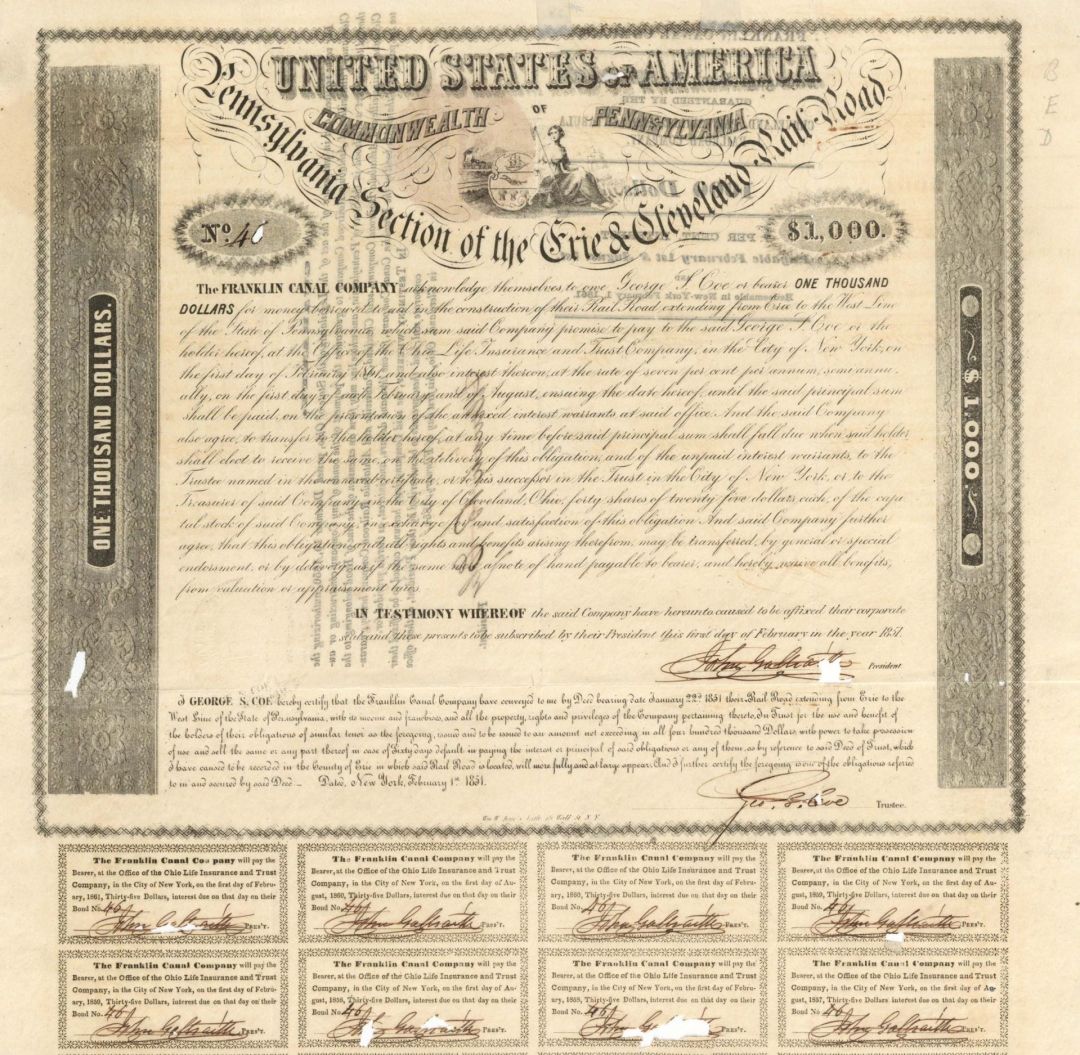 UNITED STATES OF AMERICA
COMMONWEALTH OF PENNSYLVANIA
Pennsylvania Section of the Erie & Cleveland Rail-Road
No. 46
$1,000.
The FRANKLIN CANAL COMPANY acknowledge themselves to owe George S. Coe or bearer ONE THOUSAND
DOLLARS for money borrowed to aid in the construction of their Rail Road extending from Erie to the West Line
of the State of Pennsylvania, which sum said Company promise to pay to the said George S. Coe or the
holder hereof, at the Office of the Ohio Life Insurance and Trust Company, in the City of New York, on
the first day of February 1861, and also interest thereon, at the rate of seven per cent per annum, semi annu-
ally, on the first day of each February and of August, ensuing the date hereof, until the said principal sum
shall be paid, on the presentation of the annexed interest warrants at said office. And the said Company
also agree, to transfer to the holder hereof, at any time before said principal sum shall fall due when said holder
shall elect to receive the same, on the delivery of this obligation, and of the unpaid interest warrants, to the
Trustee named in the annexed certificate, or to his successor in the Trust in the City of New York, or to the
Treasurer of said Company in the City of Cleveland, Ohio, forty shares of twenty five dollars each, of the capi-
tal stock of said Company, in exchange for and satisfaction of this obligation. And said Company further
agree, that this obligation, and all rights and benefits arising therefrom, may be transferred, by general or special
endorsment, or by delivery, as if the same was a note of hand payable to bearer, and hereby waive all benefits,
from valuation or appraisement laws.
IN TESTIMONY WHEREOF the said Company have hereunto caused to be affixed their corporate
seal and these presents to be subscribed by their President this first day of February in the year 1851.
John Galbraith President.
I GEORGE S. COE hereby certify that the Franklin Canal Company have conveyed to me by Deed bearing date January 22d 1851 their Rail Road extending from Erie to the
West Line of the State of Pensylvania, with its income and franchises, and all the property, rights and privileges of the Company pertaining thereto, In Trust for the use and benefit of
the holders of their obligations of similar tenor as the foregoing, issued and to be issued to an amount not exceeding in all four hundred thousand Dollars, with power to take possession
of use and sell the same or any part thereof in case of Sixty days default in paying the interest or principal of said obligations or any of them, as by reference to said Deed of Trust, which
I have caused to be recorded in the County of Erie in which said Rail Road is located, will more fully and at large appear. And I further certify the foregoing is one of the obligations referred
to in and secured by said Deed — Dated, New York, February 1st 1851.
Geo. S. Coe Trustee.
ONE THOUSAND DOLLARS.
$ 1,000.
B
E
D
The Franklin Canal Company will pay the
Bearer, at the Office of the Ohio Life Insurance and Trust
Company, in the City of New York, on the first day of Febru-
ary, 1861, Thirty-five Dollars, interest due on that day on their
Bond No. 46
John Galbraith PRES'T.
The Franklin Canal Company will pay the
Bearer, at the Office of the Ohio Life Insurance and Trust
Company, in the City of New York, on the first day of Au-
gust, 1860, Thirty-five Dollars, interest due on that day on their
Bond No. 46
John Galbraith PRES'T.
The Franklin Canal Company will pay the
Bearer, at the Office of the Ohio Life Insurance and Trust
Company, in the City of New York, on the first day of Febru-
ary, 1860, Thirty-five Dollars, interest due on that day on their
Bond No. 46
John Galbraith PRES'T.
The Franklin Canal Company will pay the
Bearer, at the Office of the Ohio Life Insurance and Trust
Company, in the City of New York, on the first day of Au-
gust, 1859, Thirty-five Dollars, interest due on that day on their
Bond No. 46
John Galbraith PRES'T.
The Franklin Canal Company will pay the
Bearer, at the Office of the Ohio Life Insurance and Trust
Company, in the City of New York, on the first day of Febru-
ary, 1859, Thirty-five Dollars, interest due on that day on their
Bond No. 46
John Galbraith PRES'T.
The Franklin Canal Company will pay the
Bearer, at the Office of the Ohio Life Insurance and Trust
Company, in the City of New York, on the first day of Au-
gust, 1858, Thirty-five Dollars, interest due on that day on their
Bond No. 46
John Galbraith PRES'T.
The Franklin Canal Company will pay the
Bearer, at the Office of the Ohio Life Insurance and Trust
Company, in the City of New York, on the first day of Febru-
ary, 1858, Thirty-five Dollars, interest due on that day on their
Bond No. 46
John Galbraith PRES'T.
The Franklin Canal Company will pay the
Bearer, at the Office of the Ohio Life Insurance and Trust
Company, in the City of New York, on the first day of Au-
gust, 1857, Thirty-five Dollars, interest due on that day on their
Bond No. 46
John Galbraith PRES'T.